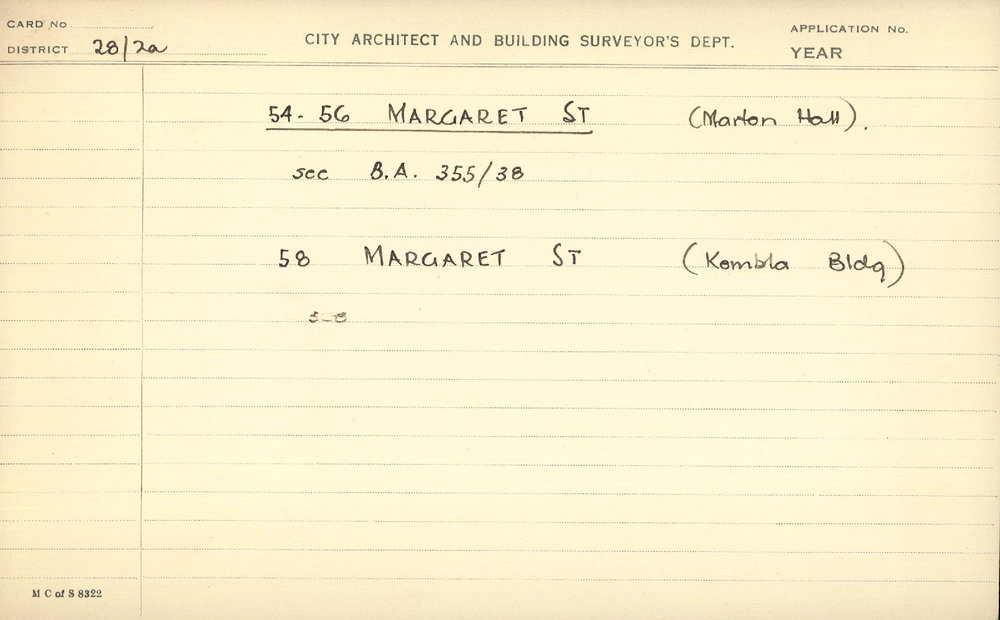 CARD No
DISTRICT 28/2a
CITY ARCHITECT AND BUILDING SURVEYOR'S DEPT.
APPLICATION No.
YEAR
54-56 MARGARET ST (Marton Hall).
see B.A. 355/38
58 MARGARET ST (Kembla Bldg)
M C of S 8322